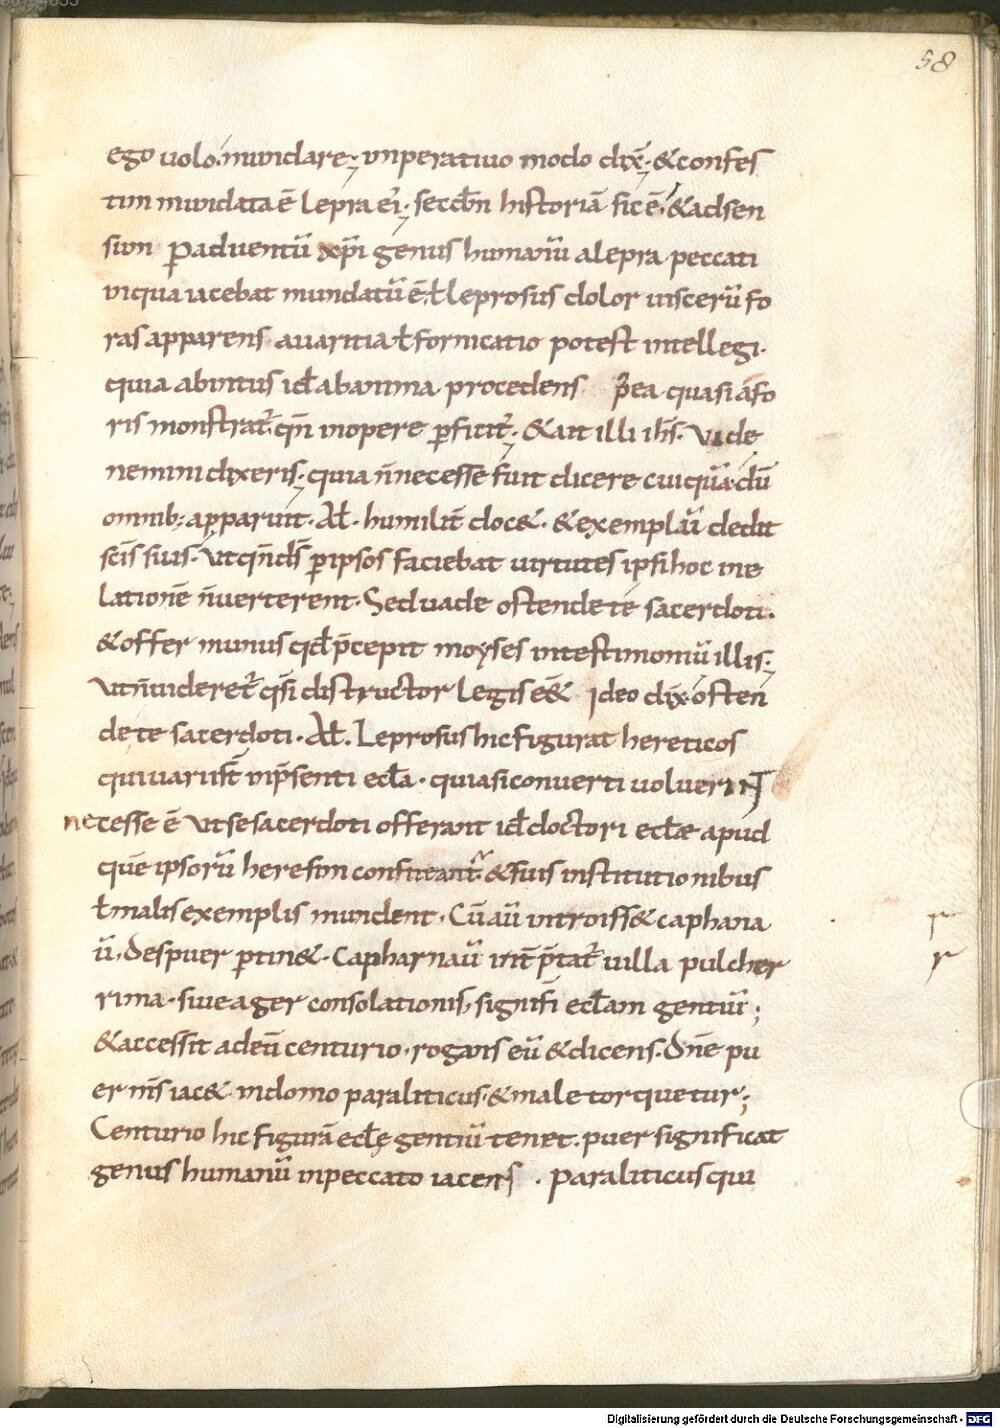 58
ego uolo. mundare; inperatiuo modo dix̄; & confes
tim mundata ē lepra ei'; secdm̄ historiā sic ē; & ad sen
sum p̱ aduentū xp̄i genus humanū a lepra peccati
in qua iacebat mundatū ē; ł leprosus dolor uiscerū fo
ras apparens auaritia ł fornicatio potest intellegi.
quia ab intus id ē ab anima procedens p̄ea quasi a fo
ris monstrat̄ qn̄ in opere p̱ficit̄; & ait illi ih̄s. Uide
nemini dixeris; quia n̄ necesse fuit dicere cuiquā dū
omnib; apparuit. Al̄. humilit̄ doc&. & exemplū dedit
sc̄is suis. ut qn̄ d̄s p̱ ipsos faciebat uirtutes ipsi hoc in e
lationē n̄ uerterent. Sed uade ostende te sacerdoti.
& offer munus qd̄ p̄cepit moyses in testimoniū illis;
ut n̄ uideret̄ qs̄i distructor legis eē& Ideo dix̄ osten
de te sacerdoti. Al̄. Leprosus hic figurat hereticos
qui uari sūt in p̄senti eccl̄a. quia si conuerti uoluerint
necesse ē ut se sacerdoti offerant id ē doctori eccl̄ae apud
quē ipsorū heresim & suis institutionibus
ł malis exemplis mundent. Cū aū introiss& caphana
ū, Despuer ptin&. Capharnaū int̄p̄tat̄ uilla pulcher
rima. siue ager consolationis, signifi eccl̄am gentiū;
& accessit ad eū centurio. rogans eū & dicens. Dn̄e pu
er ms̄ iac& in domo paraliticus. & male torquetur;
Centurio hic figurā eccl̄ę gentiū tenet. puer significat
genus humanū in peccato iacens. Paraliticus qui
Digitalisierung gefördert durch die Deutsche Forschungsgemeinschaft - DFG